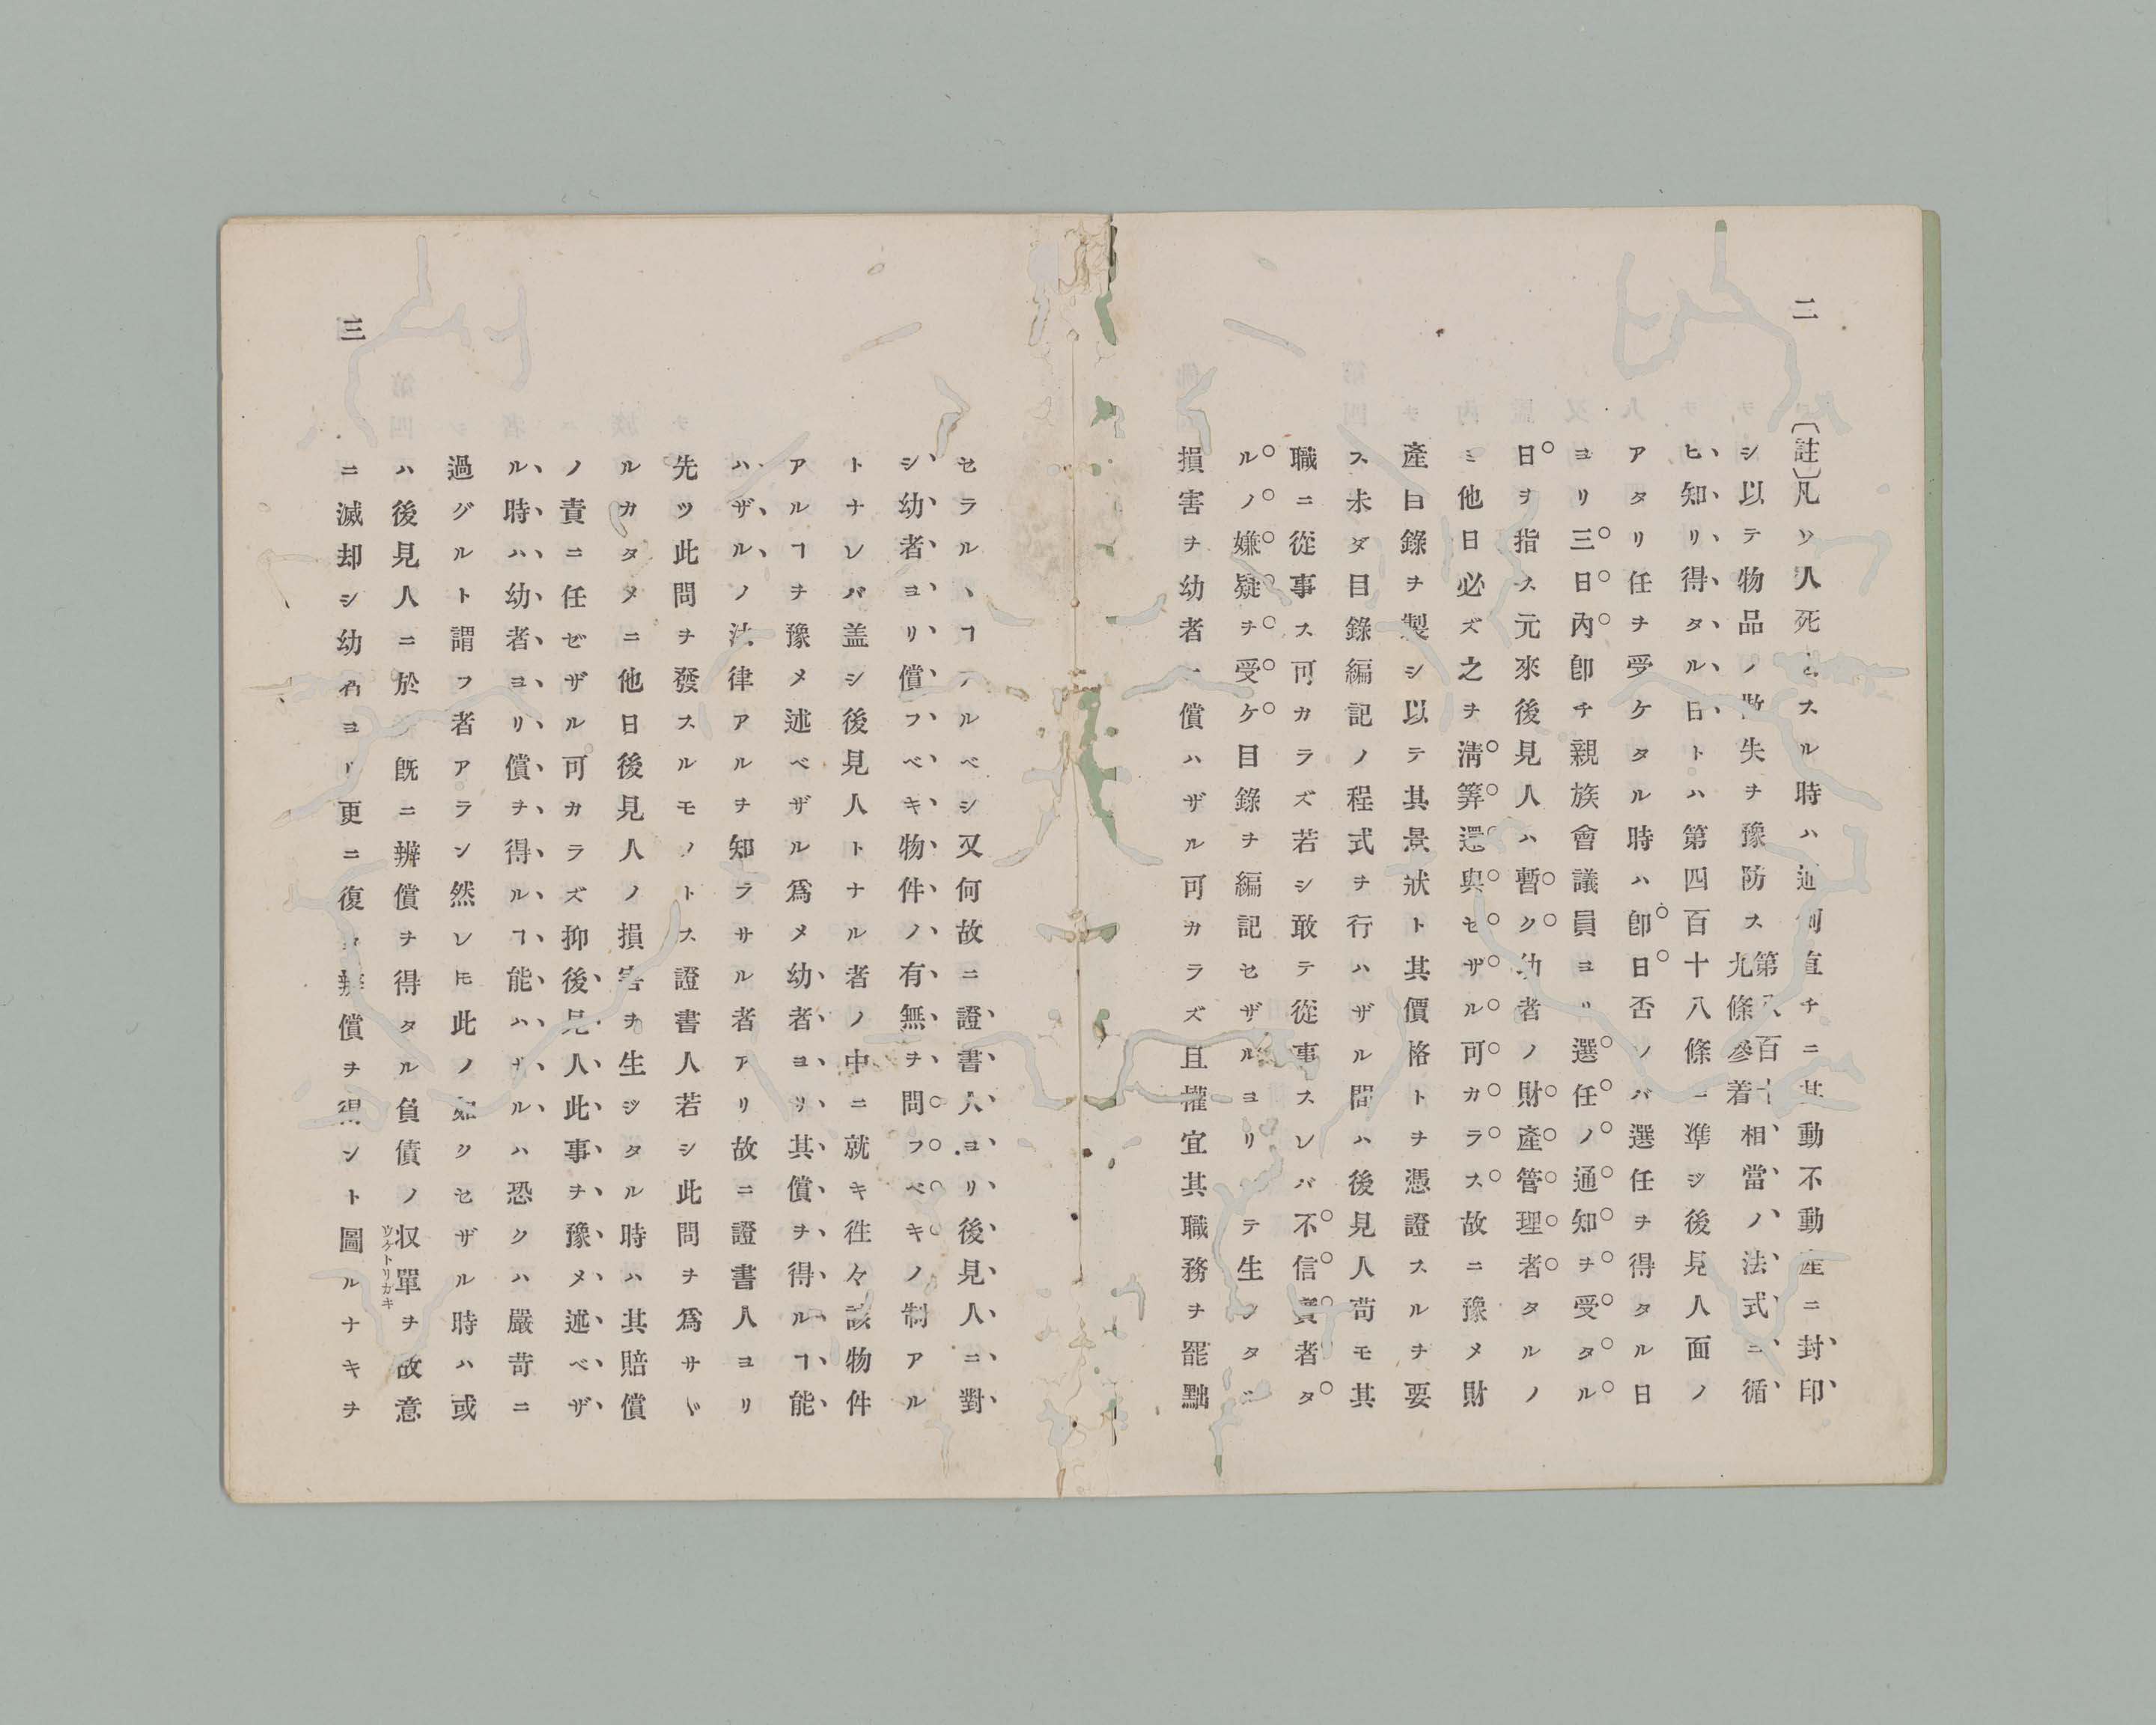 二
〔註〕凡ソ人死スル時ハ直チニ其動不動産ニ封印
シ以テ物品ノ散失ヲ豫防ス第八百十九條參着相當ノ法式ニ循
ヒ知リ得タル日トハ第四百十八條ニ準ジ後見人面ノ
アタリ任ヲ受ケタル時ハ即日否ノバ選任ヲ得タル日
ヨリ三日內即チ親族會議員ヨリ選任ノ通知ヲ受タル
日ヲ指ス元來後見人ハ暫ク幼者ノ財產管理者タルノ
ミ他日必ズ之ヲ淸筭還與セザル可カラス故ニ豫メ財
產目錄ヲ製シ以テ其景狀ト其價格トヲ憑證スルヲ要
ス未ダ目錄編記ノ程式ヲ行ハザル間ハ後見人苟モ其
職ニ從事ス可カラズ若シ敢テ從事スレバ不信實者タ
ルノ嫌疑ヲ受ケ目錄ヲ編記セザルヨリテ生ジタル
損害ヲ幼者ニ償ハザル可カラズ且權宜其職務ヲ罷黜
セラルヽヿアルベシ又何故ニ證書人ヨリ後見人ニ對
シ幼者ヨリ償フベキ物件ノ有無ヲ問フベキノ制アル
トナレバ盖シ後見人トナル者ノ中ニ就キ徃々該物件
アルヿヲ豫メ述ベザル爲メ幼者ヨリ其償ヲ得ルヿ能
ハザルノ法律アルヲ知ラサル者アリ故ニ證書人ヨリ
先ツ此問ヲ發スルモノトス證書人若シ此問ヲ爲サヾ
ルカタメニ他日後見人ノ損害ヲ生ジタル時ハ其賠償
ノ責ニ任ゼザル可カラズ抑後見人此事ヲ豫メ述ベザ
ル時ハ幼者ヨリ償ヲ得ルヿ能ハザルハ恐クハ嚴苛ニ
過グルト謂フ者アラン然レ𪜈此ノ如クセザル時ハ或
ハ後見人ニ於既ニ辨償ヲ得タル負債ノ収單ヲ故意
ウケトリガキ
ニ滅却シ幼者ヨリ更ニ復辨償ヲ得ント圖ルナキヲ
三